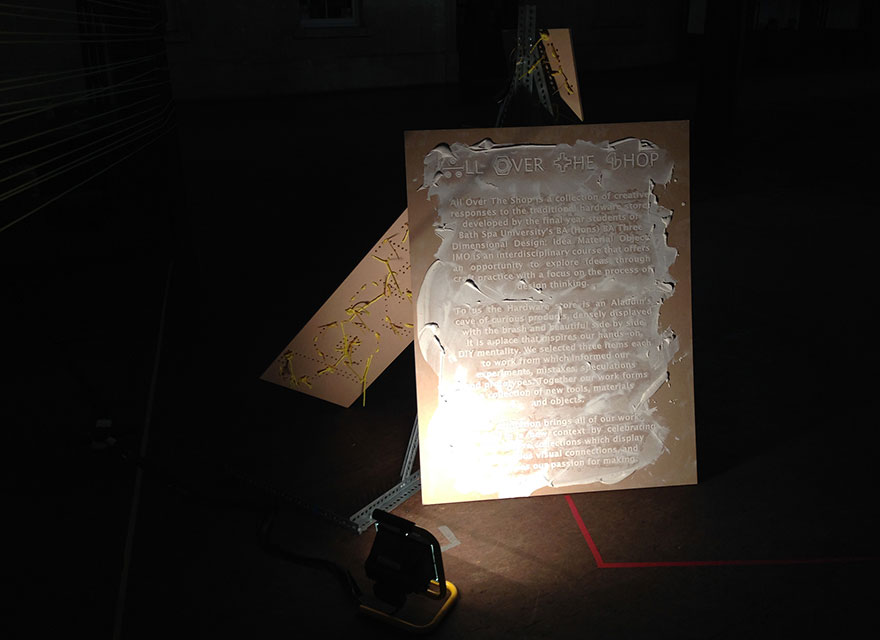 ALL OVER THE SHOP
All Over The Shop is a collection of creative
responses to the traditional hardware store
developed by the final year students on
Bath Spa University's BA (Hons) BA Three
Dimensional Design: Idea Material Object.
IMO is an interdisciplinary course that offers
an opportunity to explore ideas through
craft practice with a focus on the process of
design thinking.
To us the Hardware Store is an Aladdin's
cave of curious products densely displayed
with the brash and beautiful side by side.
It is a place that inspires our hands-on,
DIY mentality. We selected three items each
to work from which informed our
experiments, mistakes, speculations
and prototypes. Together our work forms
collection of new tools, materials
and objects.
brings all of our work
context by celebrating
which display
visual connections, and
our passion for making.